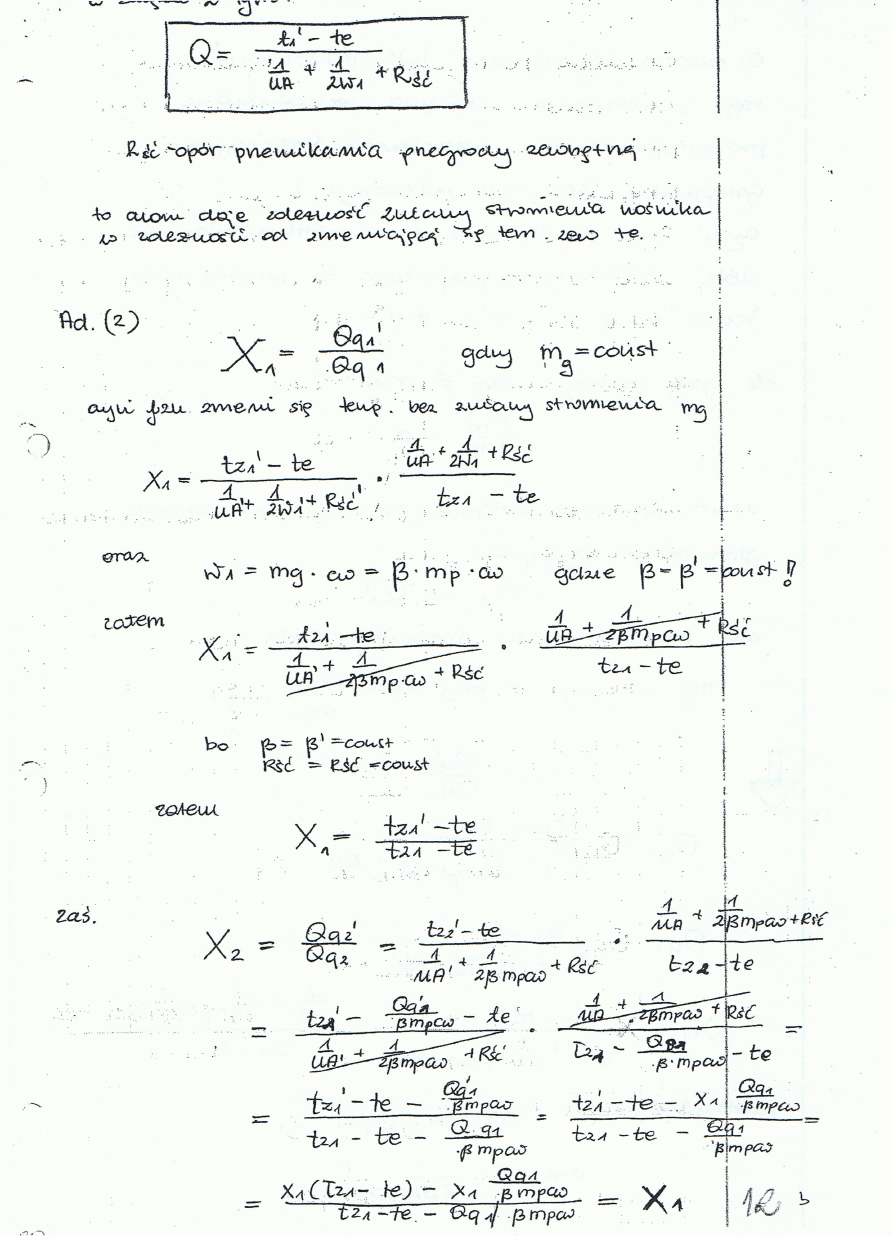 Q = (t1' - te) / (1/UA + 1/2W1 + Rść)
Rść - opór przenikania przegrody zewnętrznej
to nam daje zależność zmiany strumienia nośnika
w zależności od zmieniającej się tem. zew te.
Ad. (2)
X1 = Qq1' / Qq1 gdy mg = const
czyli gdy zmieni się temp. bez zmiany strumienia mg
X1 = (tz1' - te) / (1/UA' + 1/2W1' + Rść') · (1/UA + 1/2W1 + Rść) / (tz1 - te)
oraz W1 = mg · cw = β · mp · cw gdzie β = β' = const !!
zatem X1 = (tz1' - te) / (1/UA' + 1/2βmp·cw + Rść) · (1/UA + 1/2βmpcw + Rść) / (tz1 - te)
bo β = β' = const
Rść = Rść = const
zatem
X1 = (tz1' - te) / (tz1 - te)
zaś. X2 = Qq2' / Qq2 = (tz2' - te) / (1/UA' + 1/2βmpcw + Rść) · (1/UA + 1/2βmpcw + Rść) / (tz2 - te)
= (tz1' - Qq1'/βmpcw - te) / (1/UA' + 1/2βmpcw + Rść) · (1/UA + 1/2βmpcw + Rść) / (tz1 - Qq1/β·mpcw - te) =
= (tz1' - te - Qq1'/βmpcw) / (tz1 - te - Q·q1/·βmpcw) = (tz1' - te - X1 Qq1/βmpcw) / (tz1 - te - Qq1/βmpcw) =
= (X1(tz1 - te) - X1 Qq1/βmpcw) / (tz1 - te - Qq1/βmpcw) = X1 12